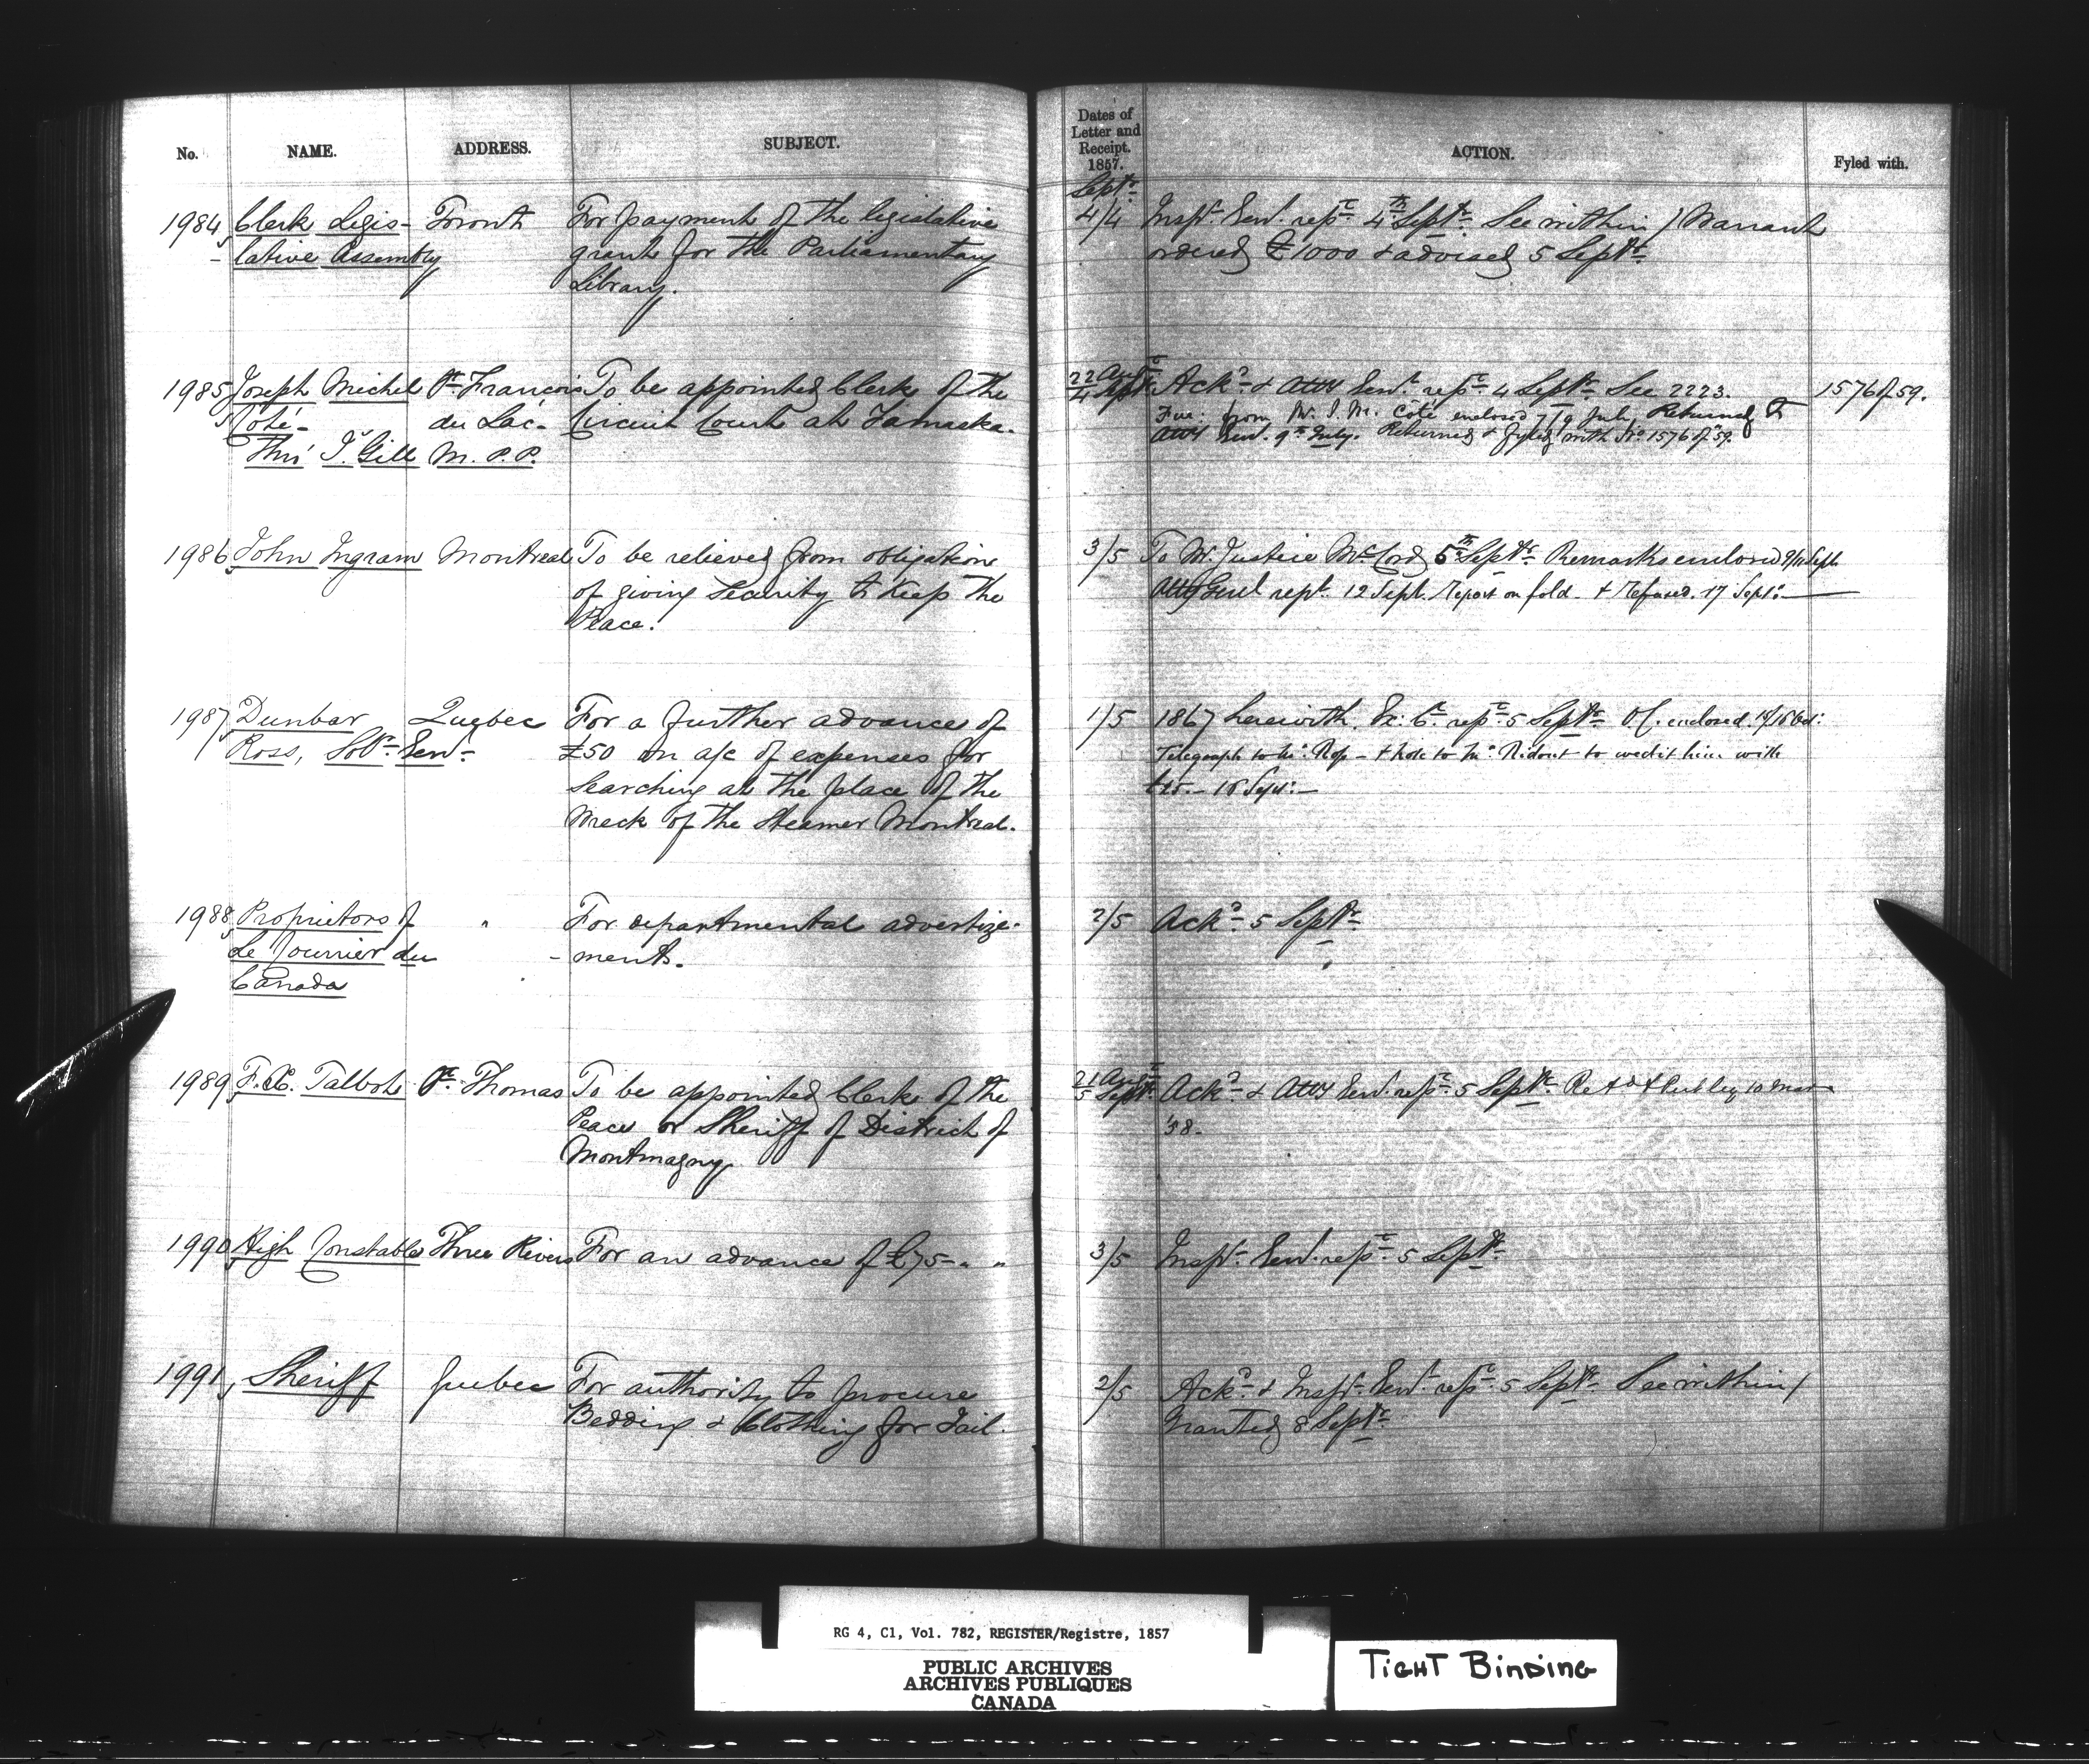 No. NAME. ADDRESS. SUBJECT.
1984 Clerk Legis- Toronto For payment of the legislative
- lative Assembly grant for the Parliamentary
Library.
1985 Joseph Michel St. François To be appointed Clerk of the
Coté- du Lac- Circuit Court at Yamaska.
Thro' I. Gill M. P. P.
1986 John Ingram Montreal To be relieved from obligation
of giving Security to Keep the
Peace.
1987 Dunbar Quebec For a further advance of
Ross, Solr. Genl. £50 on a/c of expenses for
searching at the place of the
Wreck of the Steamer Montreal.
1988 Proprietors of " For departmental advertize-
Le Courrier du - ments.
Canada
1989 F. X. Talbot St. Thomas To be appointed Clerk of the
Peace or Sheriff of District of
Montmagny
1990 High Constable Three Rivers For an advance of £75- " "
1991, Sheriff Quebec For authority to procure
Bedding & Clothing for Jail.
Dates of
Letter and
Receipt.
1857. ACTION. Fyled with.
Septr.
4/4 Inspr. Genl. repe. 4th Septr. See within / Warrant
ordered £1000 & advised 5 Septr.
22 Augt
4 Septr Ackd. & Atty Genl. repe. 4 Septr. See 2223. 1576 of 59.
from Mr. J. M. Coté enclosed 7/9 July Returned to
Atty Genl. 9th July. Returned & fyled with No 1576 of "59.
3/5 To Mr Justice McCord 5th Septr. Remarks enclosed 9/11 Sept.
Atty Genl rept. 12 Sept. Report on fold - & Refused. 17 Sept:
1/5 1867 herewith. Ex: C. repe. 5 Septr. O/C. enclosed
Telegraph to Mr. Ross - & Note to Mr. Ridout to credit him with
2/5 Ackd. 5 Septr.
21 Augt
5 Septr. Ackd. & Atty Genl. repe. 5 Septr. 10 Mar
'58.
3/5 Inspr. Genl. repe. 5 Septr.
2/5 Ackd. & Inspr. Genl. repe. 5 Septr. See within /
Granted 8 Septr.
RG 4, C1, Vol. 782, REGISTER/Registre, 1857
PUBLIC ARCHIVES
ARCHIVES PUBLIQUES
CANADA
TIGHT BINDING